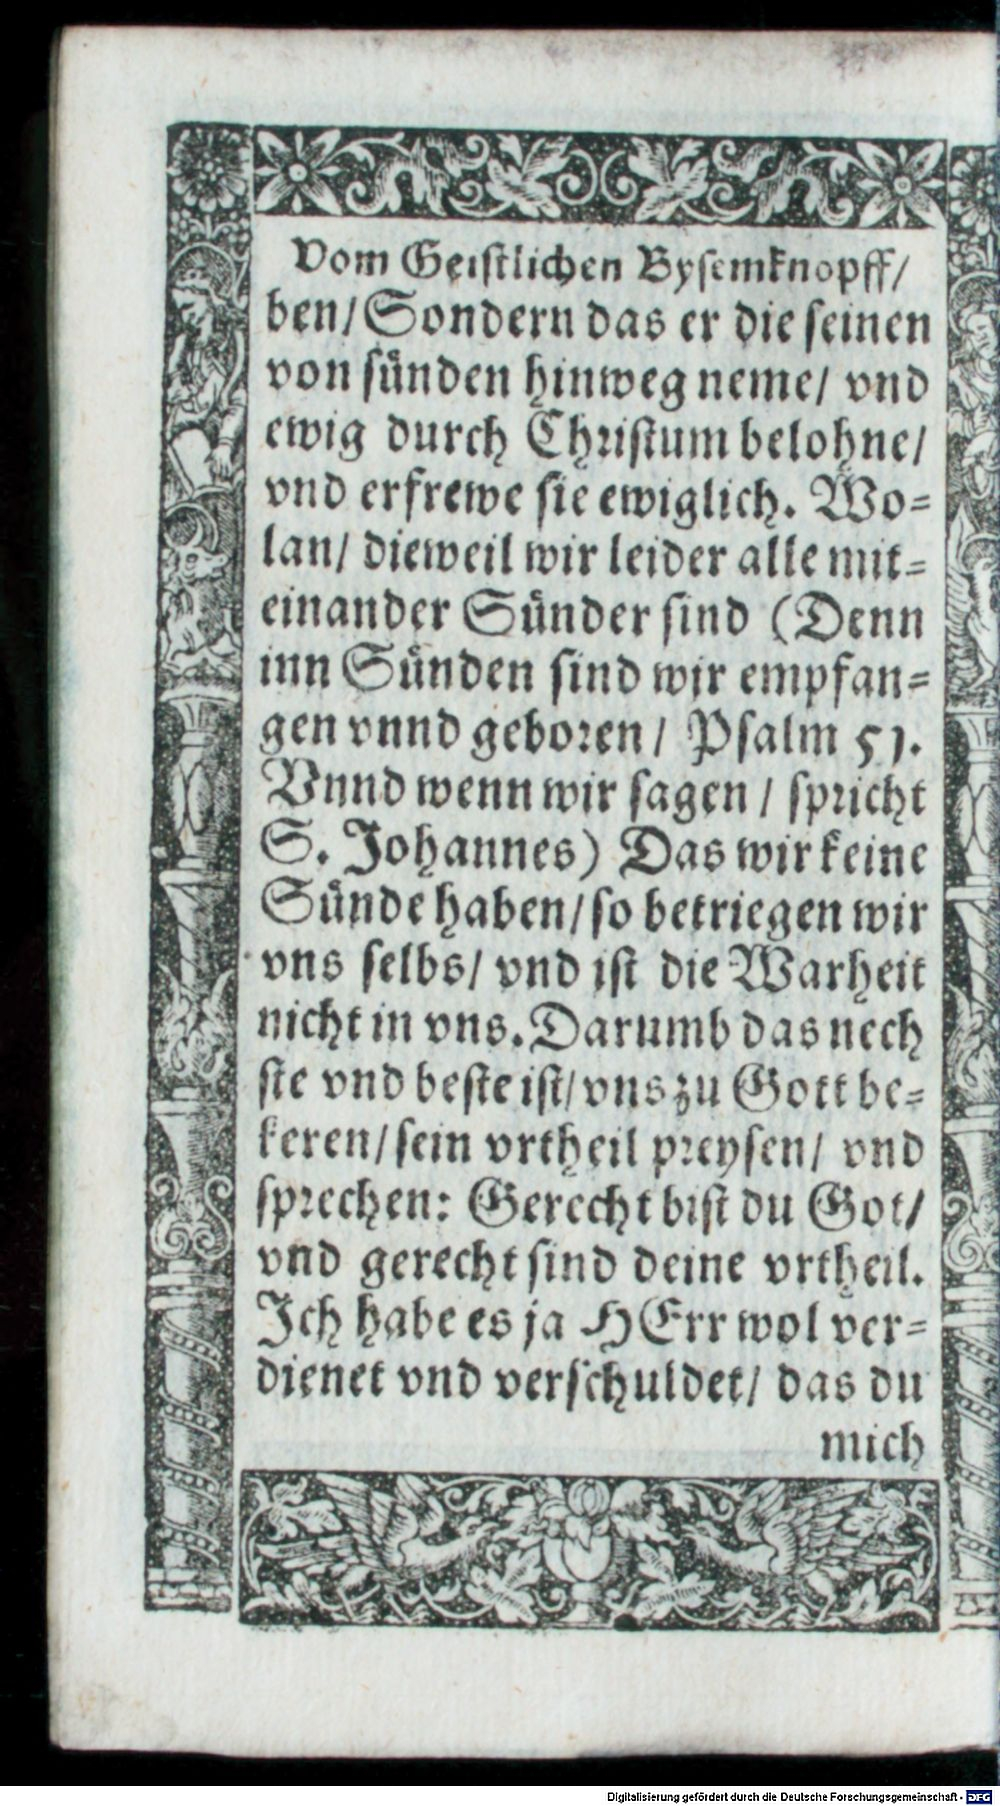 Vom Geistlichen Bysemknopff/
ben/ Sondern das er die seinen
von sünden hinweg neme/ vnd
ewig durch Christum belohne/
vnd erfrewe sie ewiglich. Wo-
lan/ dieweil wir leider alle mit-
einander Sünder sind (Denn
inn Sünden sind wir empfan-
gen vnnd geboren/ Psalm 51.
Vnnd wenn wir sagen/ spricht
S. Johannes) Das wir keine
Sünde haben/ so betriegen wir
vns selbs/ vnd ist die Warheit
nicht in vns. Darumb das nech
ste vnd beste ist/ vns zu Gott be-
keren/ sein vrtheil preysen/ vnd
sprechen: Gerecht bist du Got/
vnd gerecht sind deine vrtheil.
Ich habe es ja HErr wol ver-
dienet vnd verschuldet/ das du
mich
Digitalisierung gefördert durch die Deutsche Forschungsgemeinschaft - DFG